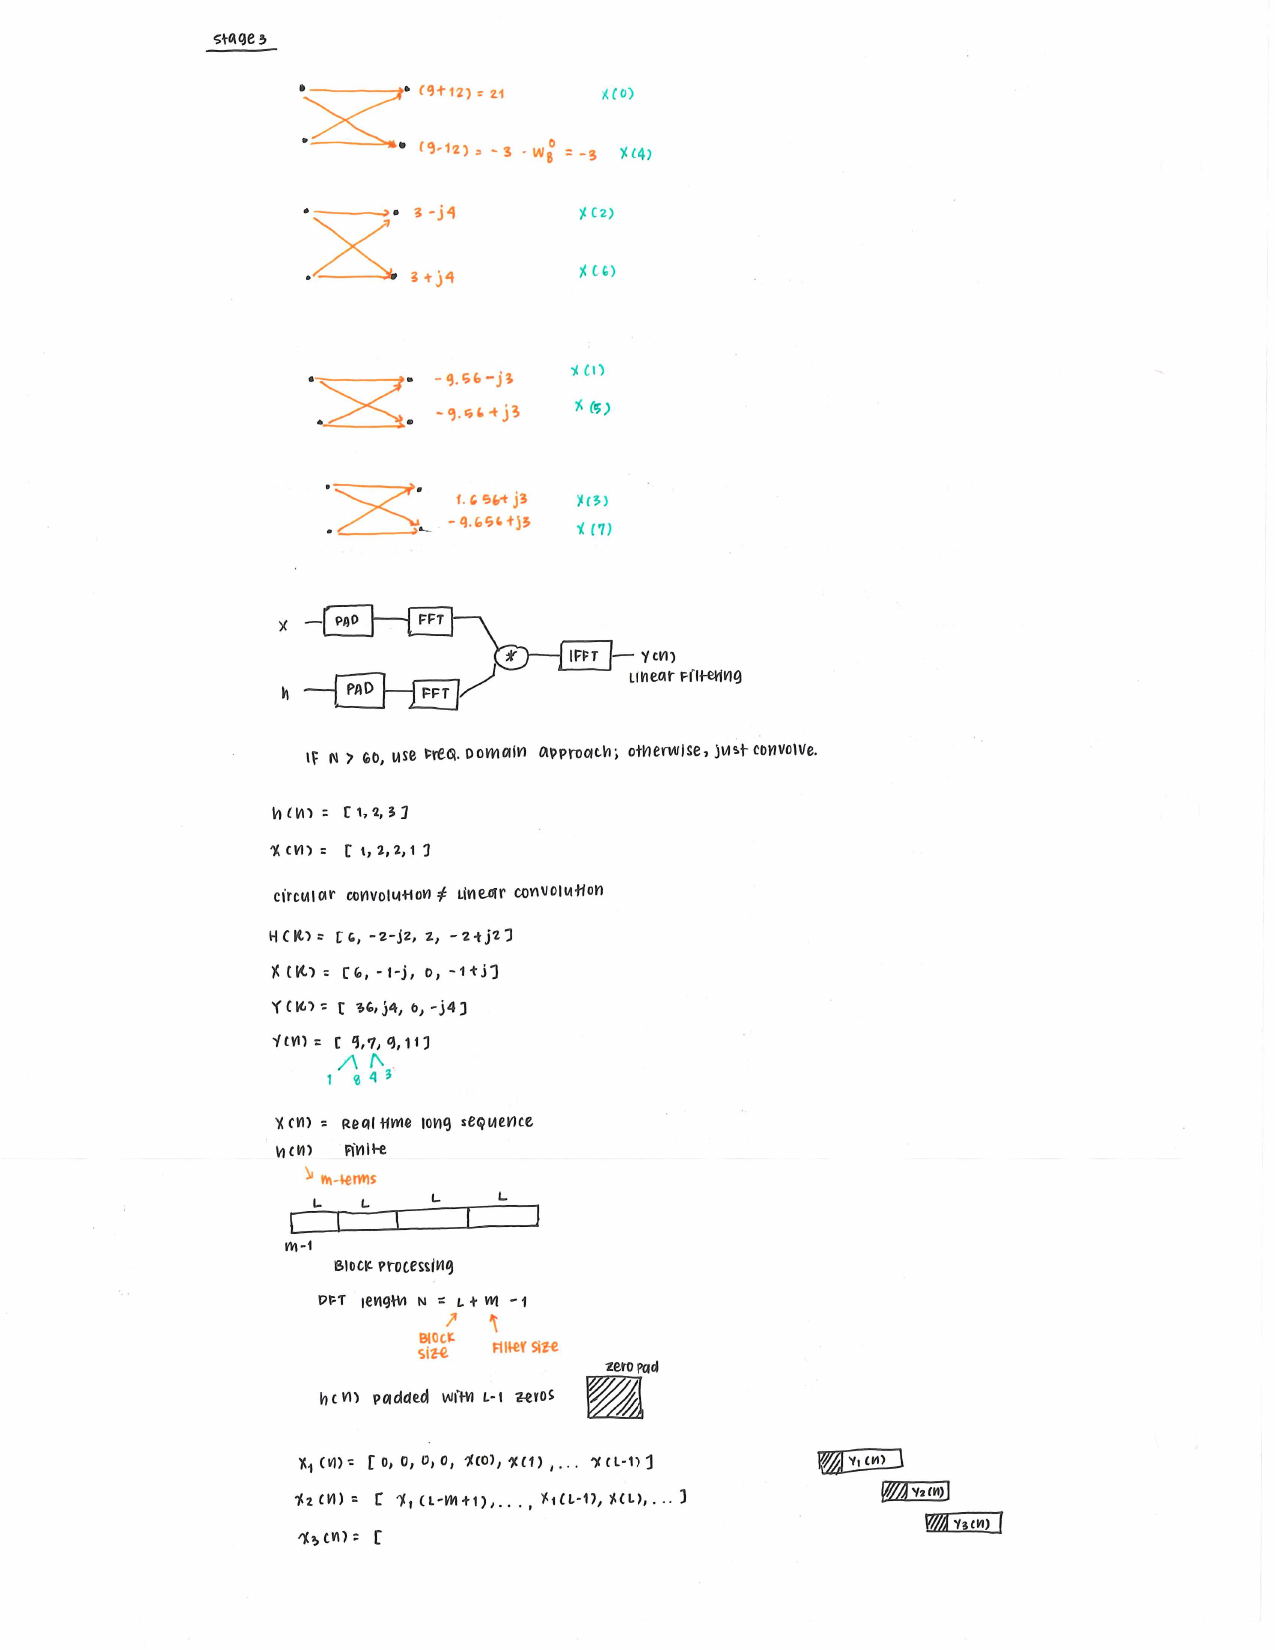 stage 3
(9+12) = 21 X(0)
(9-12) = -3 · W₈⁰ = -3 X(4)
3 -j4 X(2)
3 +j4 X(6)
-9.56-j3 X(1)
-9.56+j3 X(5)
1.656+j3 X(3)
-9.656+j3 X(7)
X PAD FFT
* IFFT Y(n)
Linear Filtering
h PAD FFT
IF N > 60, use Freq. Domain approach; otherwise, just convolve.
h(n) = [1, 2, 3]
x(n) = [1, 2, 2, 1]
circular convolution ≠ Linear convolution
H(k) = [6, -2-j2, 2, -2+j2]
X(k) = [6, -1-j, 0, -1+j]
Y(k) = [36, j4, 0, -j4]
Y(n) = [9, 7, 9, 11]
1 8 4 3
X(n) = Real time long sequence
h(n) Finite
m-terms
L L L L
m-1
Block processing
DFT length N = L + m - 1
Block size
Filter size
zero pad
h(n) padded with L-1 zeros
X₁(n) = [0, 0, 0, 0, x(0), x(1), ... x(L-1)]
x₂(n) = [ x₁(L-m+1), ..., x₁(L-1), x(L), ... ]
x₃(n) = [
Y₁(n)
Y₂(n)
Y₃(n)